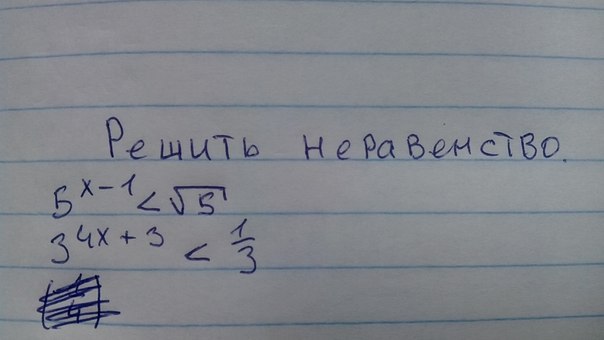 Решить неравенство.
5^{x-1} < √5
3^{4x+3} < 1/3